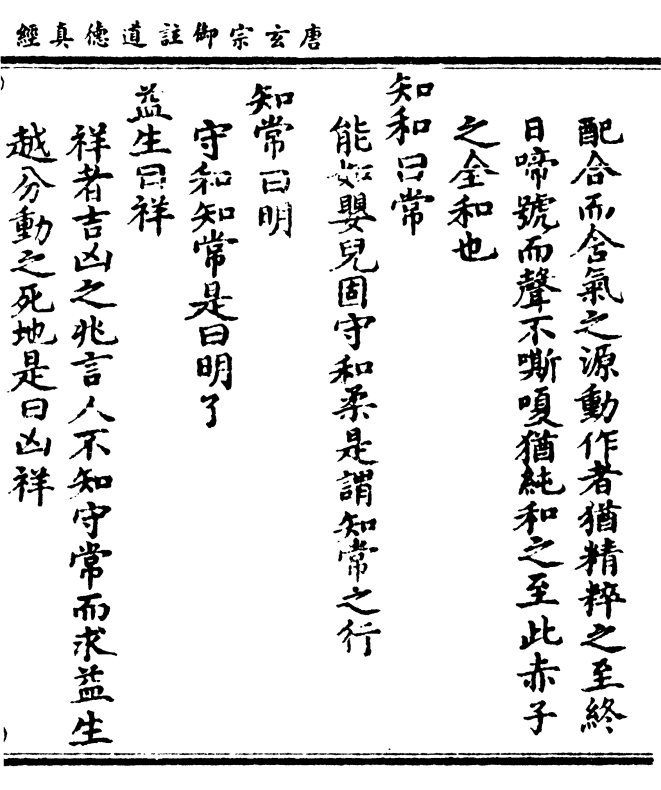 唐玄宗御註道德真經
配合而含氣之源動作者猶精粹之至終
日啼號而聲不嘶嗄猶純和之至此赤子
之全和也
知和曰常
能如嬰兒固守和柔是謂知常之行
知常曰明
守和知常是曰明了
益生曰祥
祥者吉凶之兆言人不知守常而求益生
越分動之死地是曰凶祥